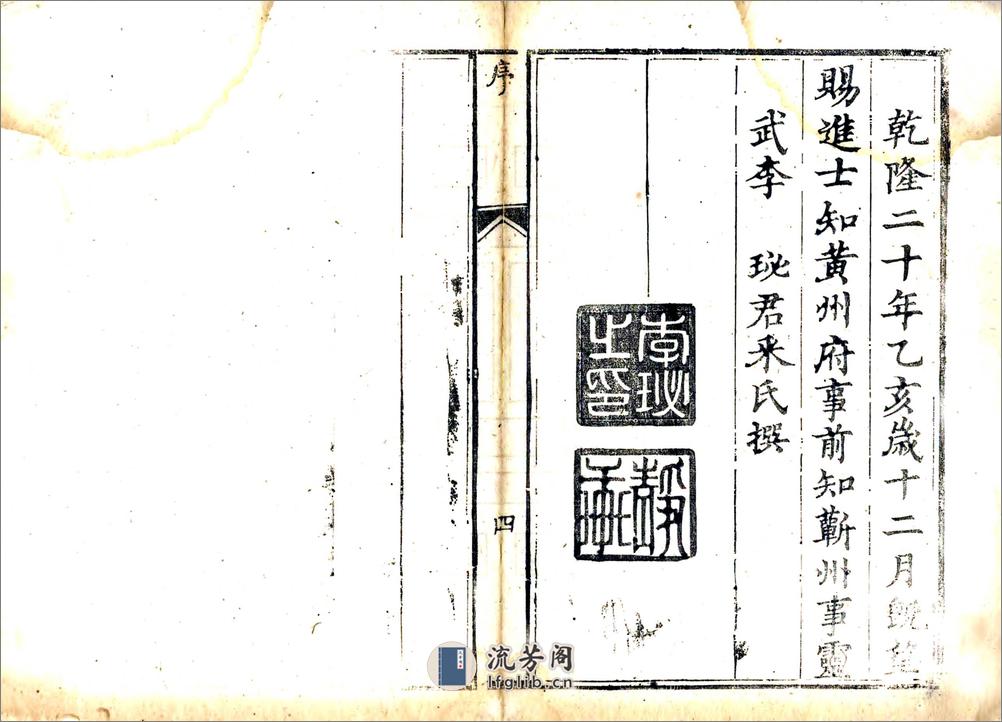 乾隆二十年乙亥歲十二月既望
賜進士知黃州府事前知蘄州事靈
武李　珌君采氏撰
李珌之印
序
四
流芳阁
lfglib.cn